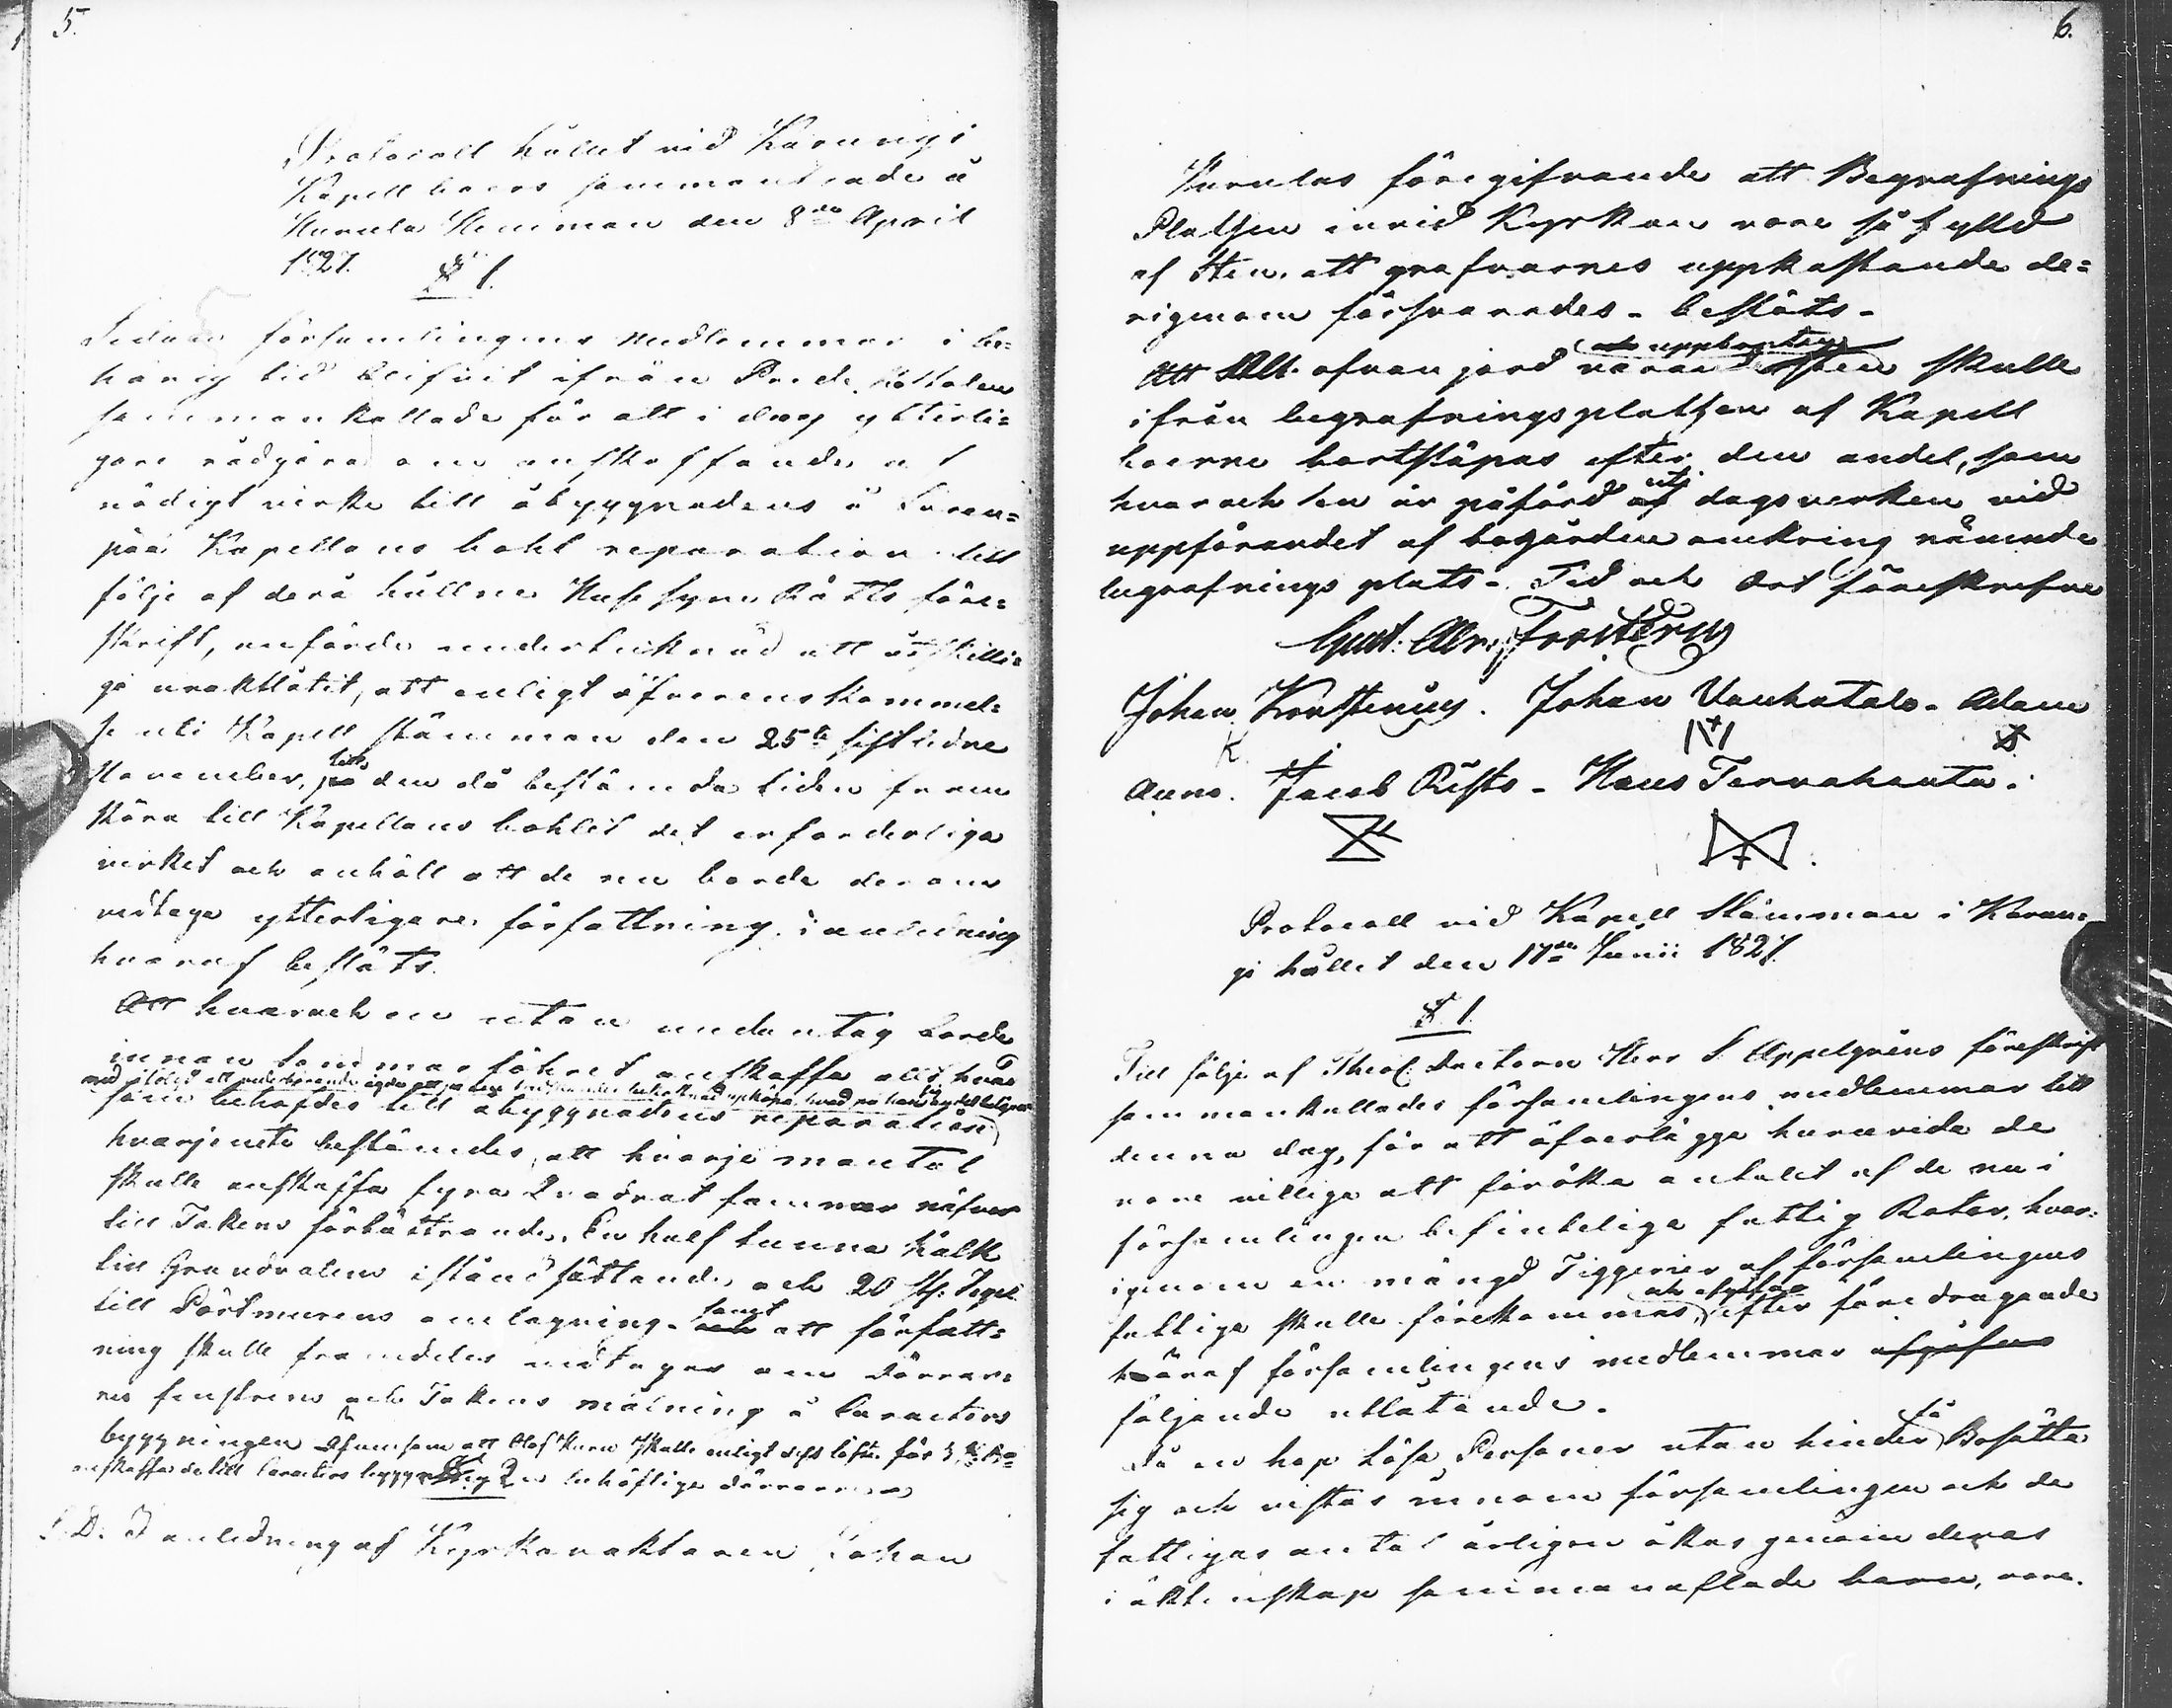 5.
Protocoll hållet vid Karungi
Kapellboers sammanträde å
Kurula Hemman den 8de April
1827.
§ 1.
Sedan församlingens medlemmar i be=
hörig tid blifvit ifrån Predikstolen
sammankallade för att i dag ytterli=
gare rådgöra om anskaffande af
nödigt virke till åbyggnadens å
Kapellans bohl reparation till
följe af derå hållne Husesyns Rätts före=
skrift, anförde undertecknad att åtskilli=
ge uraktlåtit, att enligt öfverenskommel=
se uti Kapell stämman den 25te sistledne
November, på den då bestämda tiden fram
köra till Kapellans bohlet det erforderliga
virket och anhöll att de nu borde derom
vidtaga ytterligare författning, i anledning
hvaraf beslöts.
Att hvar och en utan undantag borde
innan sommar föhret anskaffa allt hvad
som behöfdes till åbyggnadens reparation
hvarjemte bestämdes, att hvarje mantal
skulle anskaffa fyra Quadrat famnar näfver
till Takens förbättrande, En half tunna kalk
till Grundvalens iståndsättande, och 20 st: Tegel
till Pörtmurens omlagning - samt att författ=
ning skulle framdeles vidtagas om dörrar=
nes fenstrens och Takens målning å Caracters
byggningen äfvensom att Olof Kuru skulle enligt sitt löfte för 3 R:
anskaffa de till Caracters byggningen behöflige dörrarne
§ 2
S.D. I anledning af Kyrkovaktaren Johan
6.
Kurulas föregifvande att Begrafnings
Platsen invid Kyrkan vore så fylld
af Sten, att grafvarnes uppkastande de=
rigenom försvårades - beslöts -
och uppbruten
Att Allt ofvan jord varande sten skulle
ifrån begrafningsplatsen af Kapell
boerne bortsläpas efter den andel, som
hvar och en är påförd uti dagsverken vid
uppförandet af bogården omkring nämnde
begrafnings plats - Tid och Ort föreskrefne
Gust: Abr: Forsterus
Johan Korstenius. Johan Vanhatalo - Adam
K
Auno. Jacob Risto - Hans Tervahauta.
Protocoll vid Kapell Stämman i Karun=
gi hållet den 17de Junii 1827.
§ 1.
Till följe af Theol: Doctoren Herr S. Appelgréns föreskrift
sammankallades församlingens medlemmar till
denna dag, för att öfverlägga huruvida de
vore villige att föröka antalet af de nu i
församlingen befinteliga fattig Rotar, hvar=
igenom en mängd Tiggerier af församlingens
fattige skulle förekommas, efter föredragande
häraf församlingens medlemmar afgåfvo
följande utlåtande.
få
Då en hop lösa Personer utan hinder Bosätta
sig och vistas innom församlingen och de
fattigas antal årligen ökas genom deras
i äktenskap sammanaflade barn, vore.